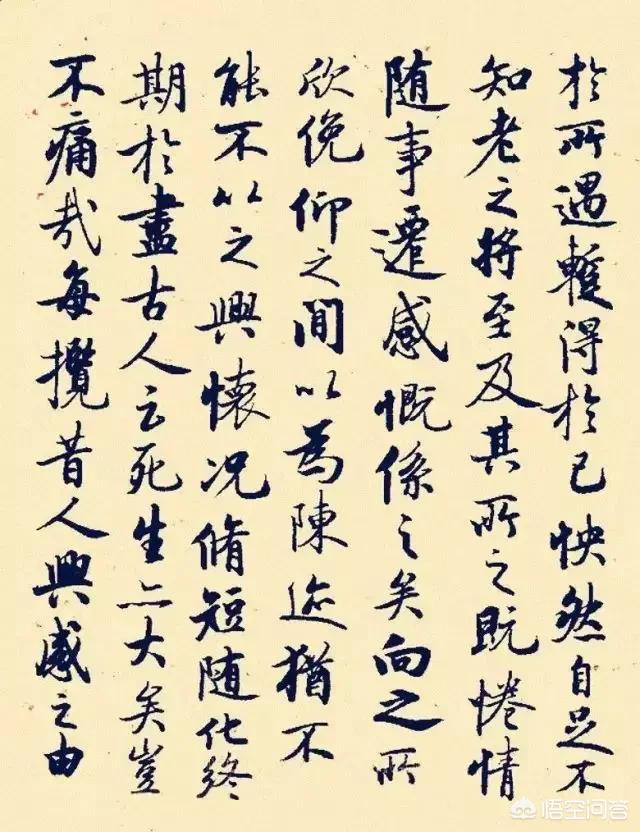 於所遇蹔得於己怏然自足不
知老之將至及其所之既惓情
随事遷感慨係之矣向之所
欣俛仰之間以為陳迹猶不
能不以之興懷况脩短随化終
期於盡古人云死生亦大矣豈
不痛哉每攬昔人興感之由
悟空问答